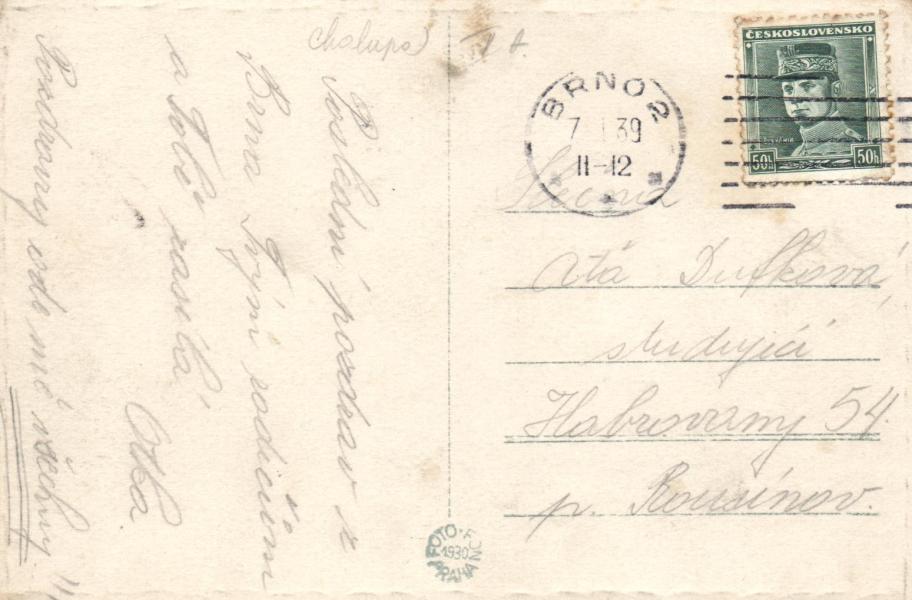 Chalupa)
Poslední pozdrav z
Brna Tvým rodičům
a Tobě zasílá
Ota
Pozdravuj ode mě všechny
ČESKOSLOVENSKO
50h 50h
BRNO 2
7 I 39
11-12
Slečna
Dufková
studující
Habrovany 54
p. Rousínov.
FOTO-FON
1930
PRAHA